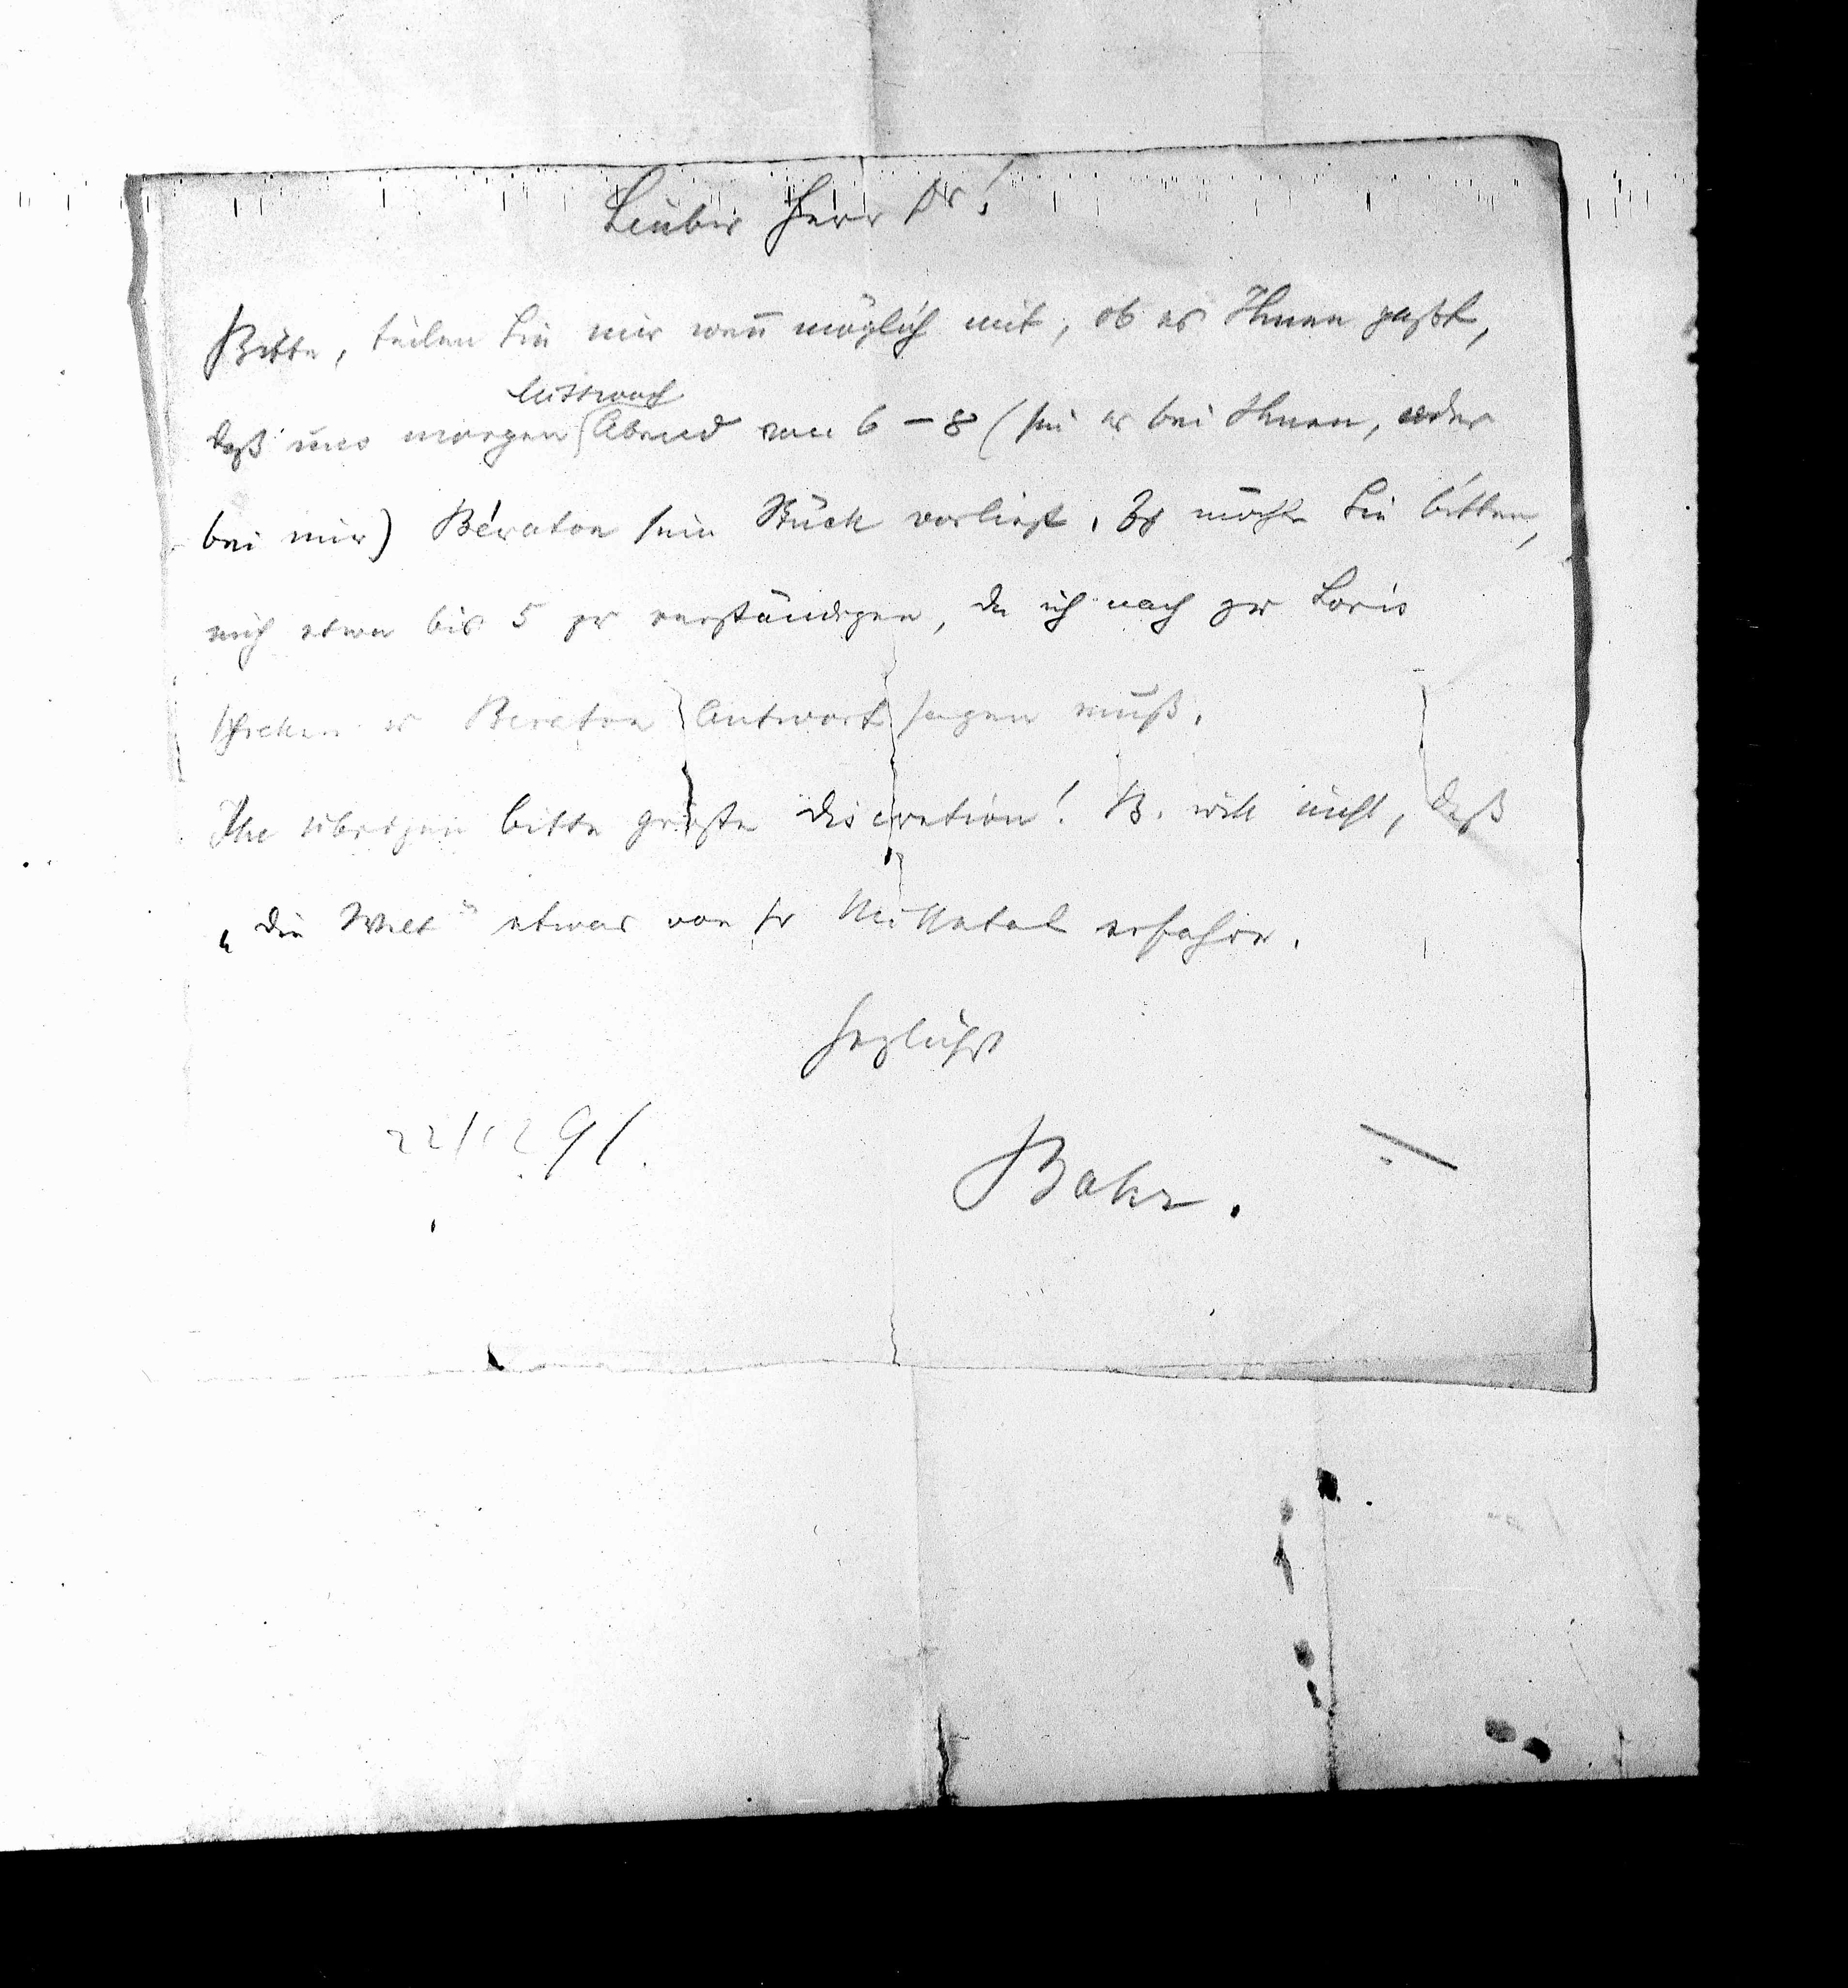 Lieber Herr Dr!
Bitte, teilen Sie mir wen̅ möglich mit, ob es Ihnen paßt,
Mittwoch
daß uns morgen Abend von 6 – 8 (sei es bei Ihnen, oder
bei mir) Bératon sein Stück vorliest. Ich möchte Sie bitten,
mich etwa bis 5 zu verständigen, da ich noch zu Loris
schicken u Beraton Antwort sagen muß.
Im übrigen bitte größte Discretion! B. will nicht, daß
„die Welt“ etwas von sr Missetat erfahre.
Herzlichst
22/12 91.
Bahr.